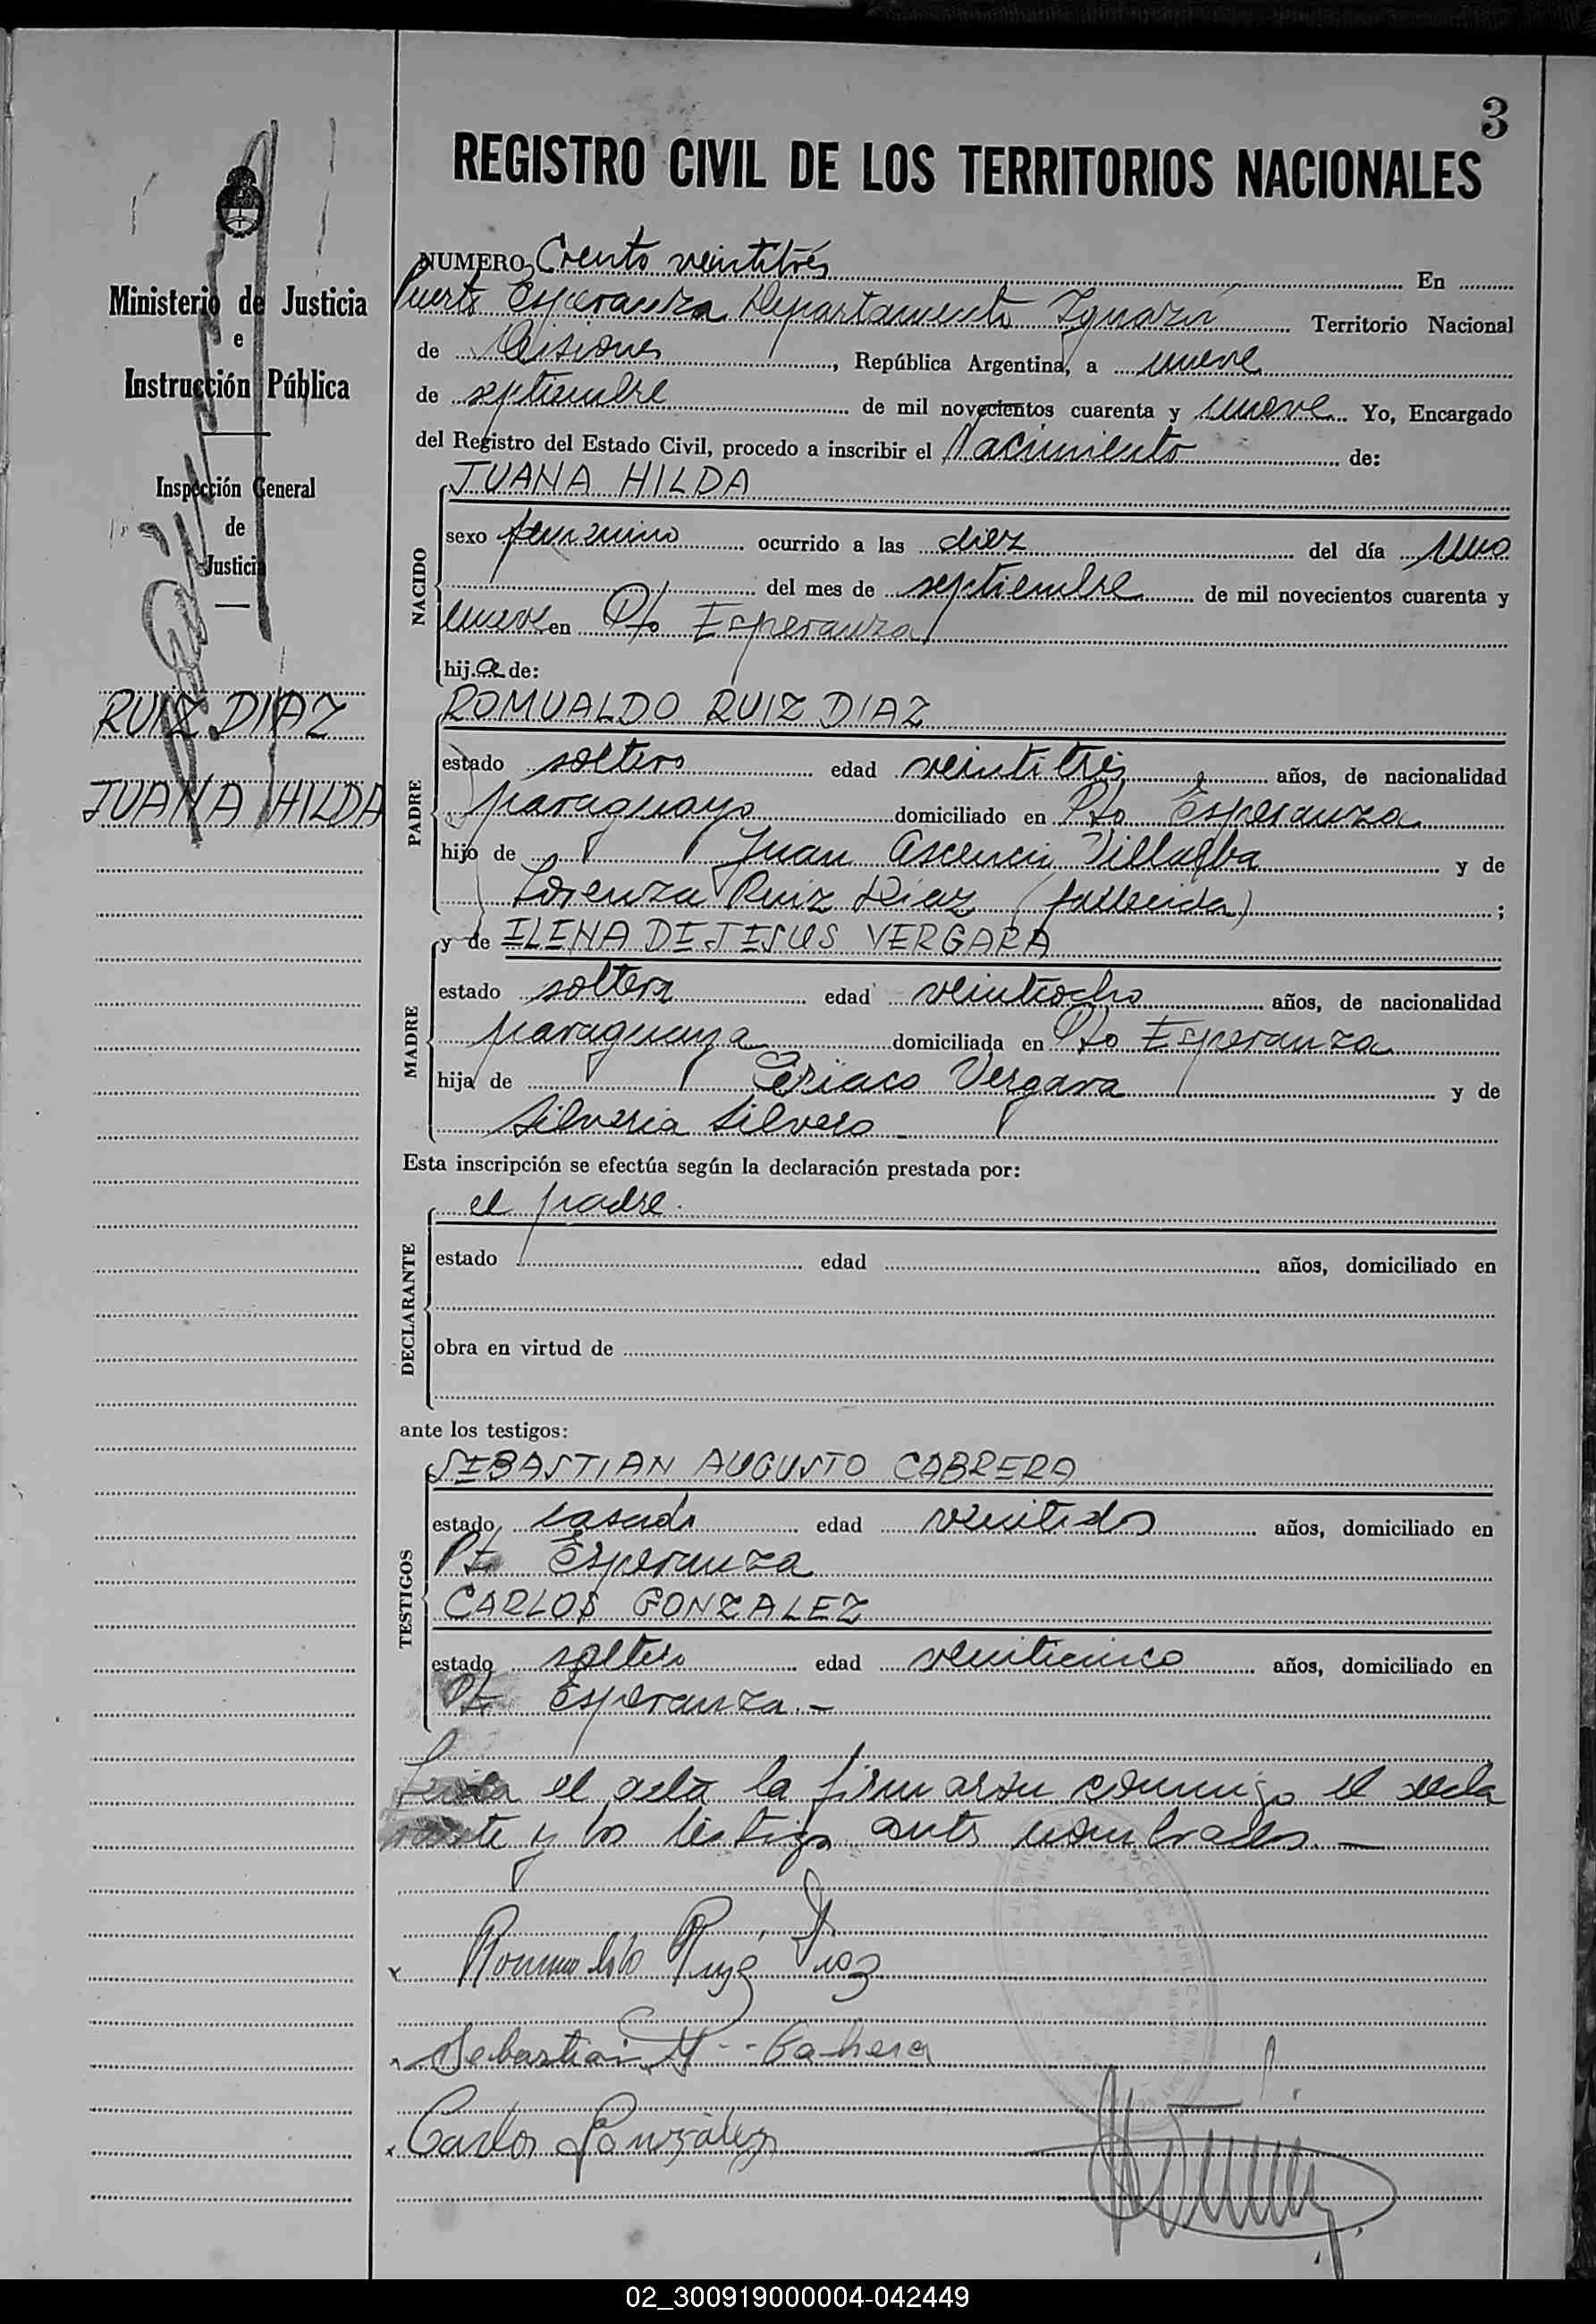 3
REGISTRO CIVIL DE LOS TERRITORIOS NACIONALES
Ministerio de Justicia
e
Instrucción Pública
Inspección General
de
Justicia
RUIZ DIAZ
JUANA HILDA
NUMERO Ciento veintitrés En
Puerto Esperanza Departamento Iguazú Territorio Nacional
de Misiones, República Argentina, a nueve
de septiembre de mil novecientos cuarenta y nueve Yo, Encargado
del Registro del Estado Civil, procedo a inscribir el Nacimiento de:
NACIDO
JUANA HILDA
sexo femenino ocurrido a las diez del día uno
del mes de septiembre de mil novecientos cuarenta y
nueve en Pto Esperanza
hija de:
PADRE
ROMUALDO RUIZ DIAZ
estado soltero edad veintitres años, de nacionalidad
paraguayo domiciliado en Pto Esperanza
hijo de Juan Ascencio Villalba y de
Lorenza Ruiz Diaz (fallecida) ;
MADRE
y de ELENA DE JESUS VERGARA
estado soltera edad veintiocho años, de nacionalidad
paraguaya domiciliada en Pto Esperanza
hija de Ceriaco Vergara y de
Silveria Silvero
Esta inscripción se efectúa según la declaración prestada por:
DECLARANTE
el padre.
estado edad años, domiciliado en
obra en virtud de
ante los testigos:
TESTIGOS
SEBASTIAN AUGUSTO CABRERA
estado casado edad veintidos años, domiciliado en
Pto Esperanza
CARLOS GONZALEZ
estado soltero edad veinticinco años, domiciliado en
Pto Esperanza.-
Leida el acta la firmaron conmigo el decla
rante y los testigos antes nombrados.—
x Romualdo Ruiz Diaz
x Sebastian A Cabrera
x Carlos González
02_300919000004-042449